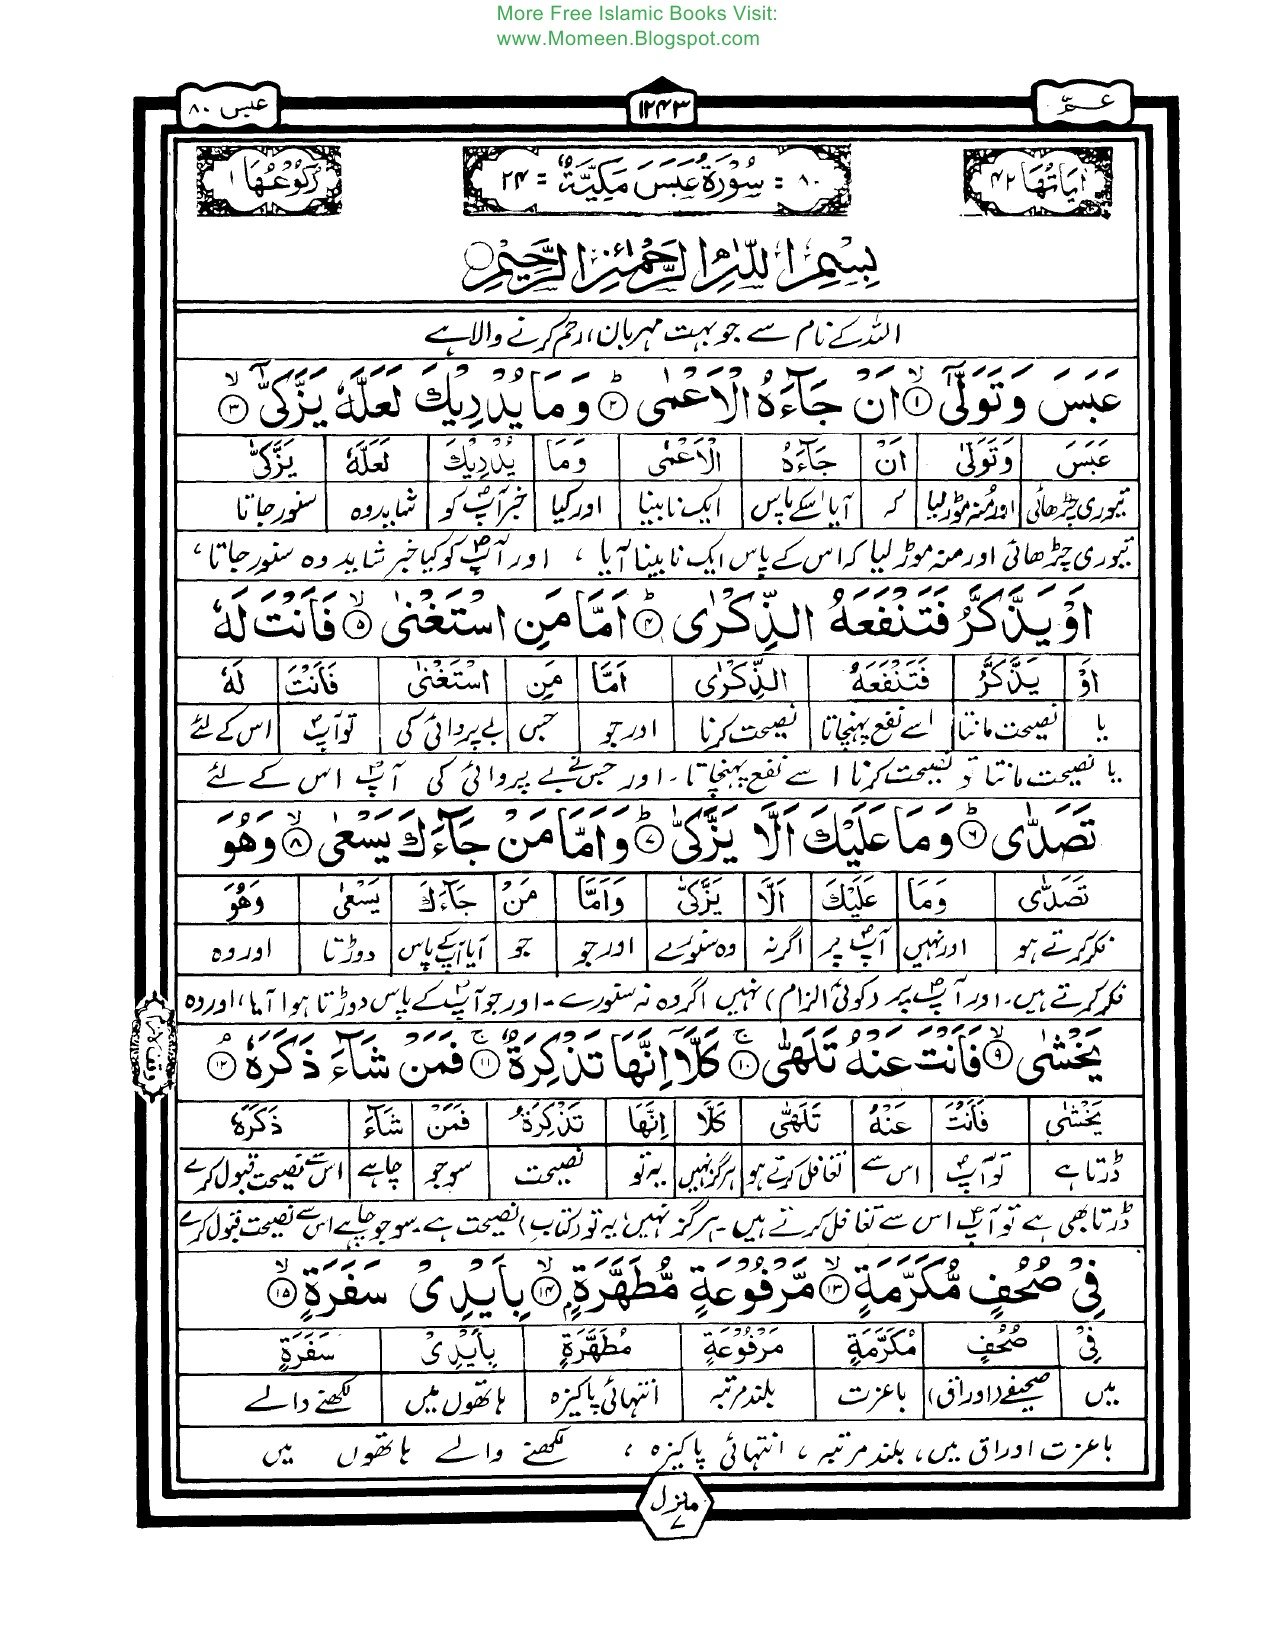 More Free Islamic Books Visit:
www.Momeen.Blogspot.com
عمّ
۱۲۴۳
عبس ۸۰
اٰيَاتُهَا ۴۲
۸۰ = سُوْرَةُ عَبَسَ مَكِّيَّةٌ = ۲۴
رُكُوْعُهَا ۱
بِسْمِ اللّٰهِ الرَّحْمٰنِ الرَّحِيْمِ
اللہ کے نام سے جو بہت مہربان، رحم کرنے والا ہے
عَبَسَ وَتَوَلّٰىٓ ۙ۱ اَنْ جَآءَهُ الْاَعْمٰى ؕ۲ وَمَا يُدْرِيْكَ لَعَلَّهٗ يَزَّكّٰىٓ ۙ۳
عَبَسَ وَتَوَلّٰى اَنْ جَآءَهُ الْاَعْمٰى وَمَا يُدْرِيْكَ لَعَلَّهٗ يَزَّكّٰى
تیوری چڑھائی اور منہ موڑ لیا کہ آیا اسکے پاس ایک نابینا اور کیا خبر آپؐ کو شاید وہ سنور جاتا
تیوری چڑھائی اور منہ موڑ لیا کہ اس کے پاس ایک نابینا آیا ، اور آپؐ کو کیا خبر شاید وہ سنور جاتا ،
اَوْ يَذَّكَّرُ فَتَنْفَعَهُ الذِّكْرٰى ؕ۴ اَمَّا مَنِ اسْتَغْنٰى ۙ۵ فَاَنْتَ لَهٗ
اَوْ يَذَّكَّرُ فَتَنْفَعَهُ الذِّكْرٰى اَمَّا مَنِ اسْتَغْنٰى فَاَنْتَ لَهٗ
یا نصیحت مانتا اسے نفع پہنچاتا نصیحت کرنا اور جو جس بے پروائی کی تو آپؐ اس کے لئے
یا نصیحت مانتا تو نصیحت کرنا اسے نفع پہنچاتا ۔ اور جس نے بے پروائی کی آپؐ اس کے لئے
تَصَدّٰى ؕ۶ وَمَا عَلَيْكَ اَلَّا يَزَّكّٰى ؕ۷ وَاَمَّا مَنْ جَآءَكَ يَسْعٰى ۙ۸ وَهُوَ
تَصَدّٰى وَمَا عَلَيْكَ اَلَّا يَزَّكّٰى وَاَمَّا مَنْ جَآءَكَ يَسْعٰى وَهُوَ
فکر کرتے ہو اور نہیں آپؐ پر اگر نہ وہ سنورے اور جو جو آیا آپکے پاس دوڑتا اور وہ
فکر کرتے ہیں۔ اور آپؐ پر (کوئی الزام) نہیں اگر وہ نہ سنورے ۔ اور جو آپؐ کے پاس دوڑتا ہوا آیا، اور وہ
يَخْشٰى ۙ۹ فَاَنْتَ عَنْهُ تَلَهّٰى ۚ۱۰ كَلَّآ اِنَّهَا تَذْكِرَةٌ ۚ۱۱ فَمَنْ شَآءَ ذَكَرَهٗ ۘ۱۲
وقف لازم
يَخْشٰى فَاَنْتَ عَنْهُ تَلَهّٰى كَلَّا اِنَّهَا تَذْكِرَةٌ فَمَنْ شَآءَ ذَكَرَهٗ
ڈرتا ہے تو آپؐ اس سے تغافل کرتے ہو ہرگز نہیں یہ تو نصیحت سو جو چاہے اس سے نصیحت قبول کرے
ڈرتا بھی ہے تو آپؐ اس سے تغافل کرتے ہیں ۔ ہرگز نہیں یہ تو (کتاب) نصیحت ہے۔ سو جو چاہے اس سے نصیحت قبول کرے
فِىْ صُحُفٍ مُّكَرَّمَةٍ ۙ۱۳ مَّرْفُوْعَةٍ مُّطَهَّرَةٍۭ ۙ۱۴ بِاَيْدِىْ سَفَرَةٍ ۙ۱۵
فِىْ صُحُفٍ مُكَرَّمَةٍ مَرْفُوْعَةٍ مُطَهَّرَةٍ بِاَيْدِىْ سَفَرَةٍ
میں صحیفے (اوراق) باعزت بلند مرتبہ انتہائی پاکیزہ ہاتھوں میں لکھنے والے
باعزت اوراق میں، بلند مرتبہ ، انتہائی پاکیزہ ، لکھنے والے ہاتھوں میں
منزل ۷